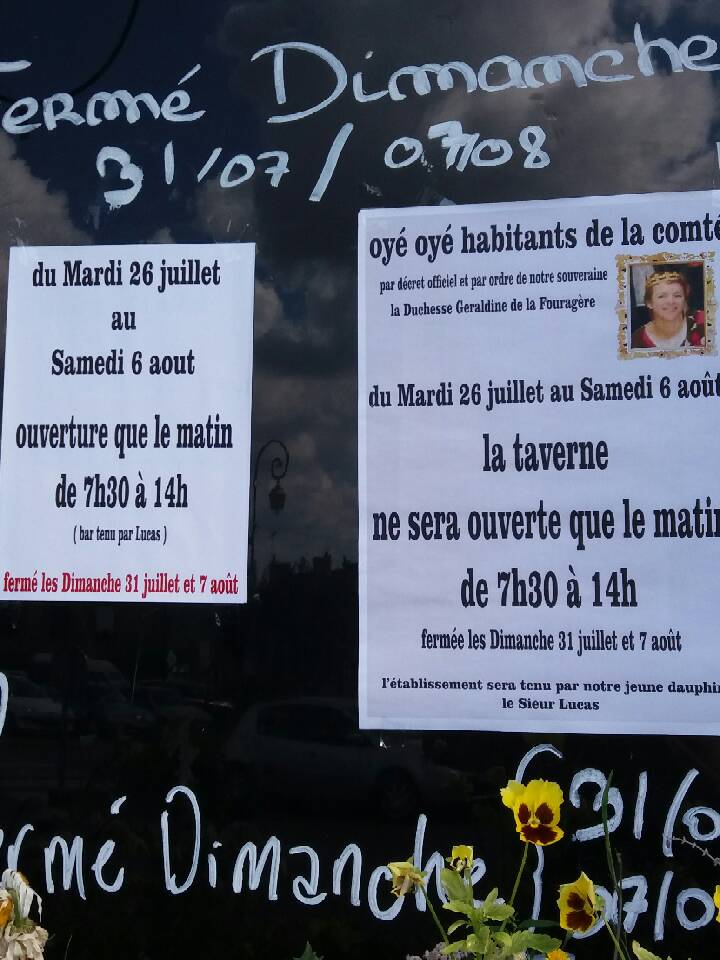 Fermé Dimanche
31/07 / 07/08
du Mardi 26 juillet
au
Samedi 6 aout
ouverture que le matin
de 7h30 à 14h
( bar tenu par Lucas )
fermé les Dimanche 31 juillet et 7 août
oyé oyé habitants de la comté
par décret officiel et par ordre de notre souveraine
la Duchesse Geraldine de la Fouragère
du Mardi 26 juillet au Samedi 6 août
la taverne
ne sera ouverte que le matin
de 7h30 à 14h
fermée les Dimanche 31 juillet et 7 août
l'établissement sera tenu par notre jeune dauphin
le Sieur Lucas
ermé Dimanche
31/0
07/0